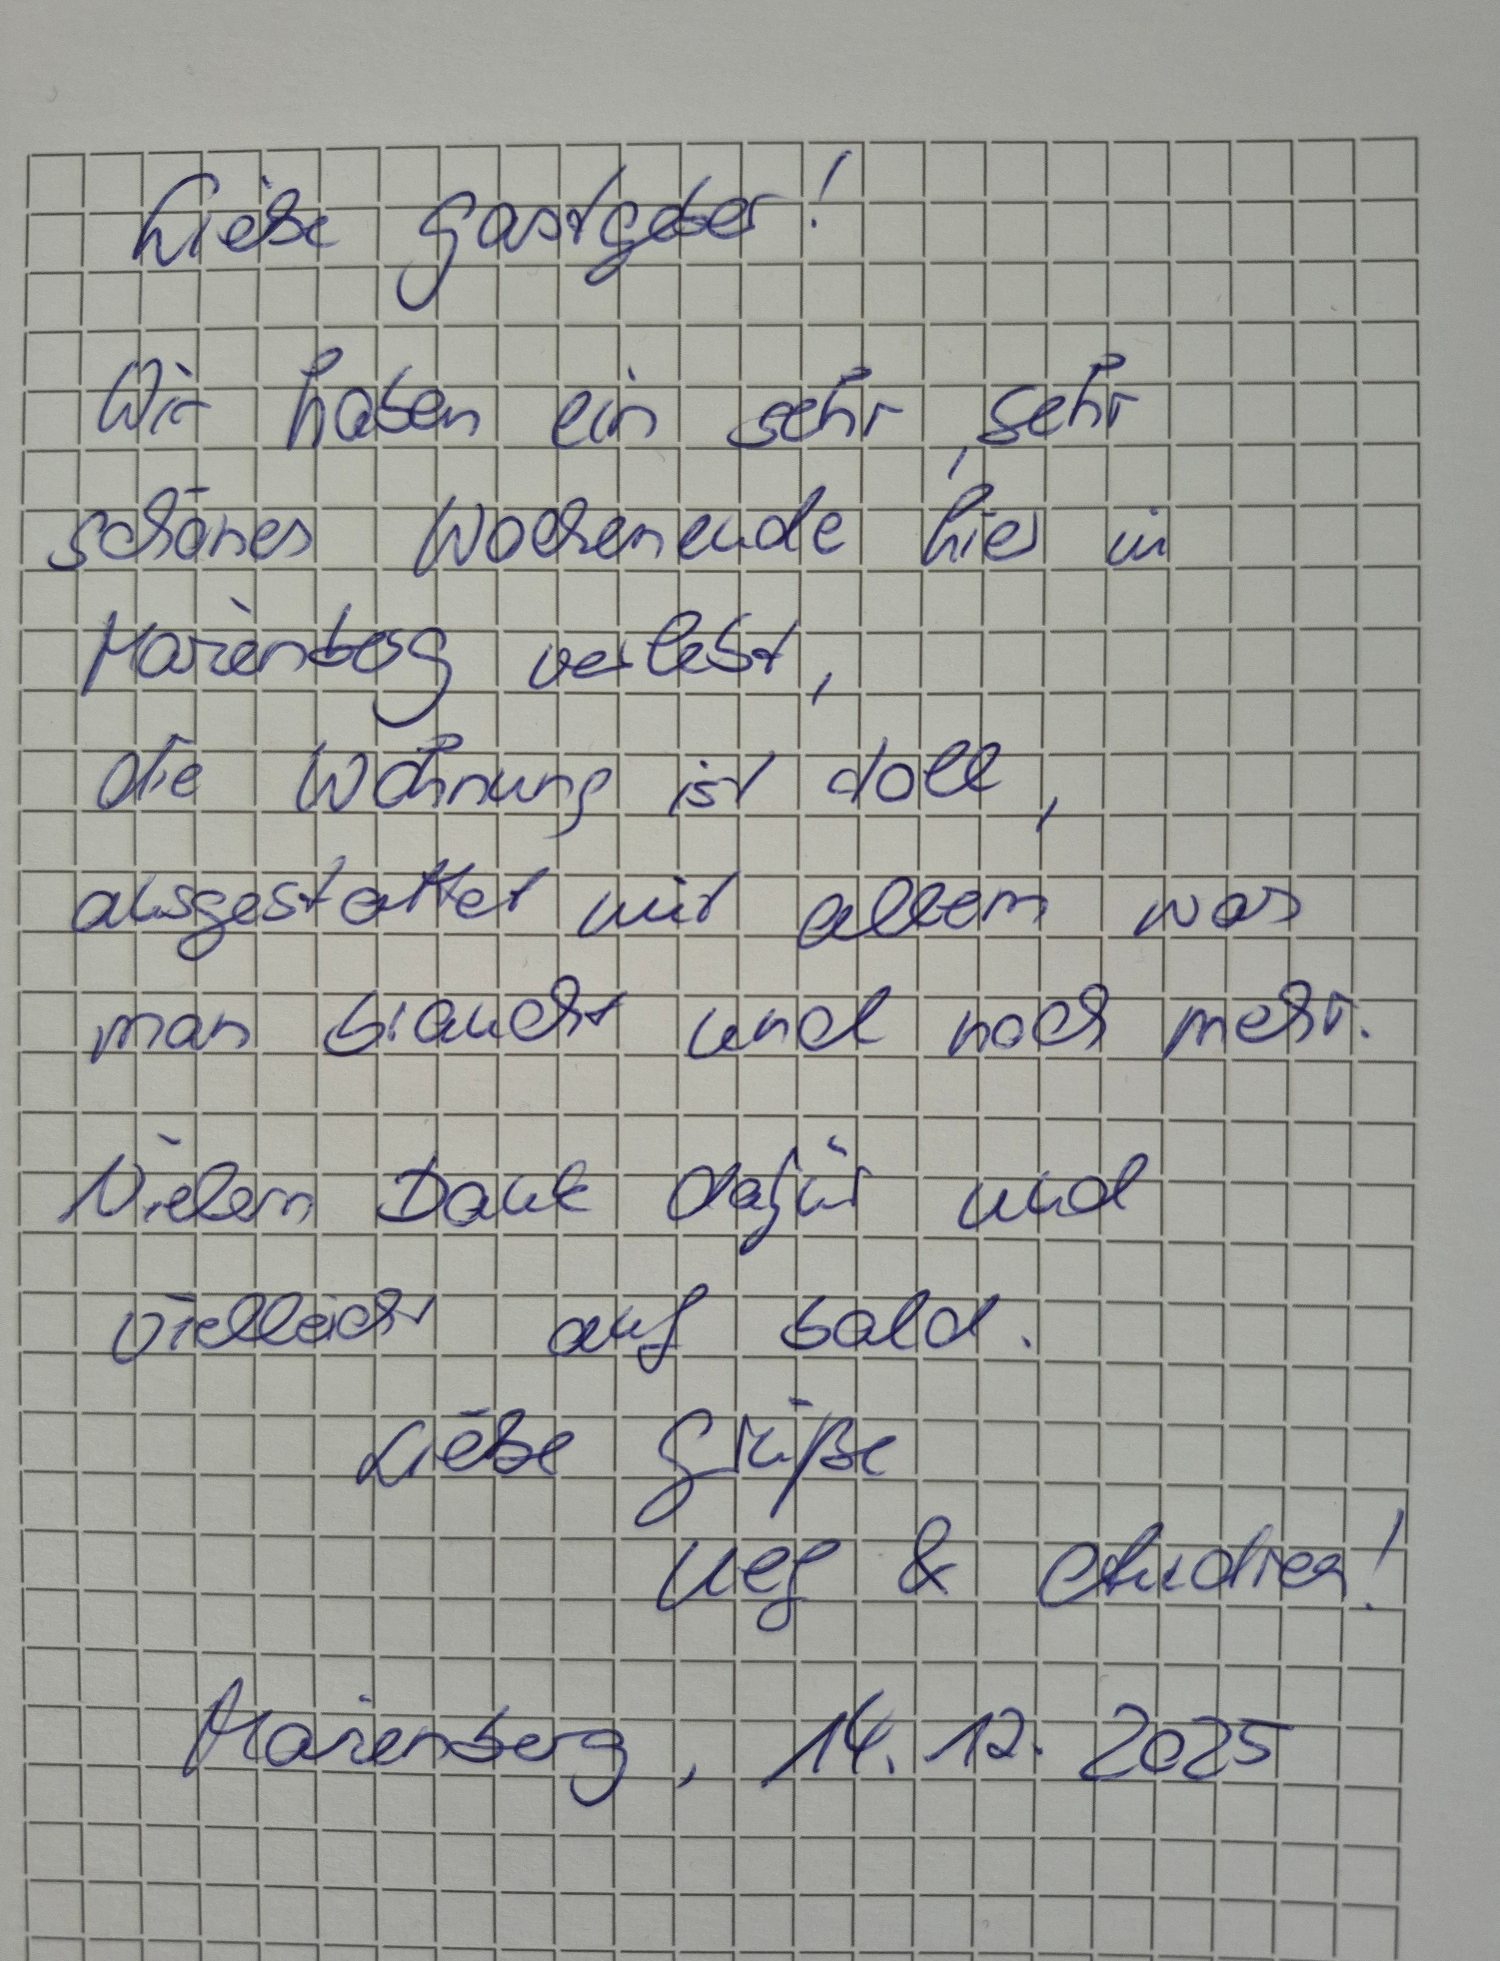 Liebe Gastgeber!
Wir haben ein sehr, sehr
schönes Wochenende hier in
Marienberg verlebt,
die Wohnung ist doll,
ausgestattet mit allem was
man braucht und noch mehr.
Vielen Dank dafür und
vielleicht auf bald.
Liebe Grüße
&
Marienberg, 14.12.2025